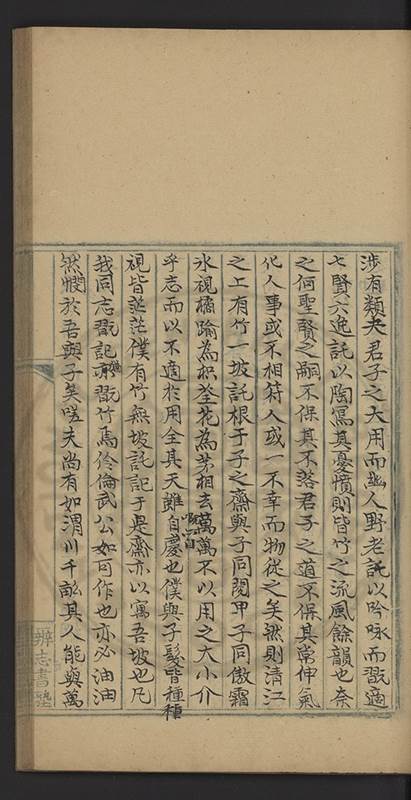 涉有類夫君子之大用而幽人野老託以吟咏而翫適
七賢六逸託以陶寫其憂憤則皆竹之流風餘韻也奈
之何聖賢之嗣不保其不落君子之道不保其常伸氣
化人事或不相符人或一不幸而物從之矣然則清江
之上有竹一坡託根于子之齋與子同閱甲子同傲霜
氷視橘踰為枳荃化為茅相去萬萬不以用之大小介
乎志而以不適於用全其天雖自慶也僕與子髮皆種種
視皆茫茫僕有竹無坡託記于是齋亦以寓吾坡也凡
我同志翫記翫竹焉伶倫武公如可作也亦必油油
然憫於吾與子矣嗟夫尚有如渭川千畝其人能與萬
辨志書塾